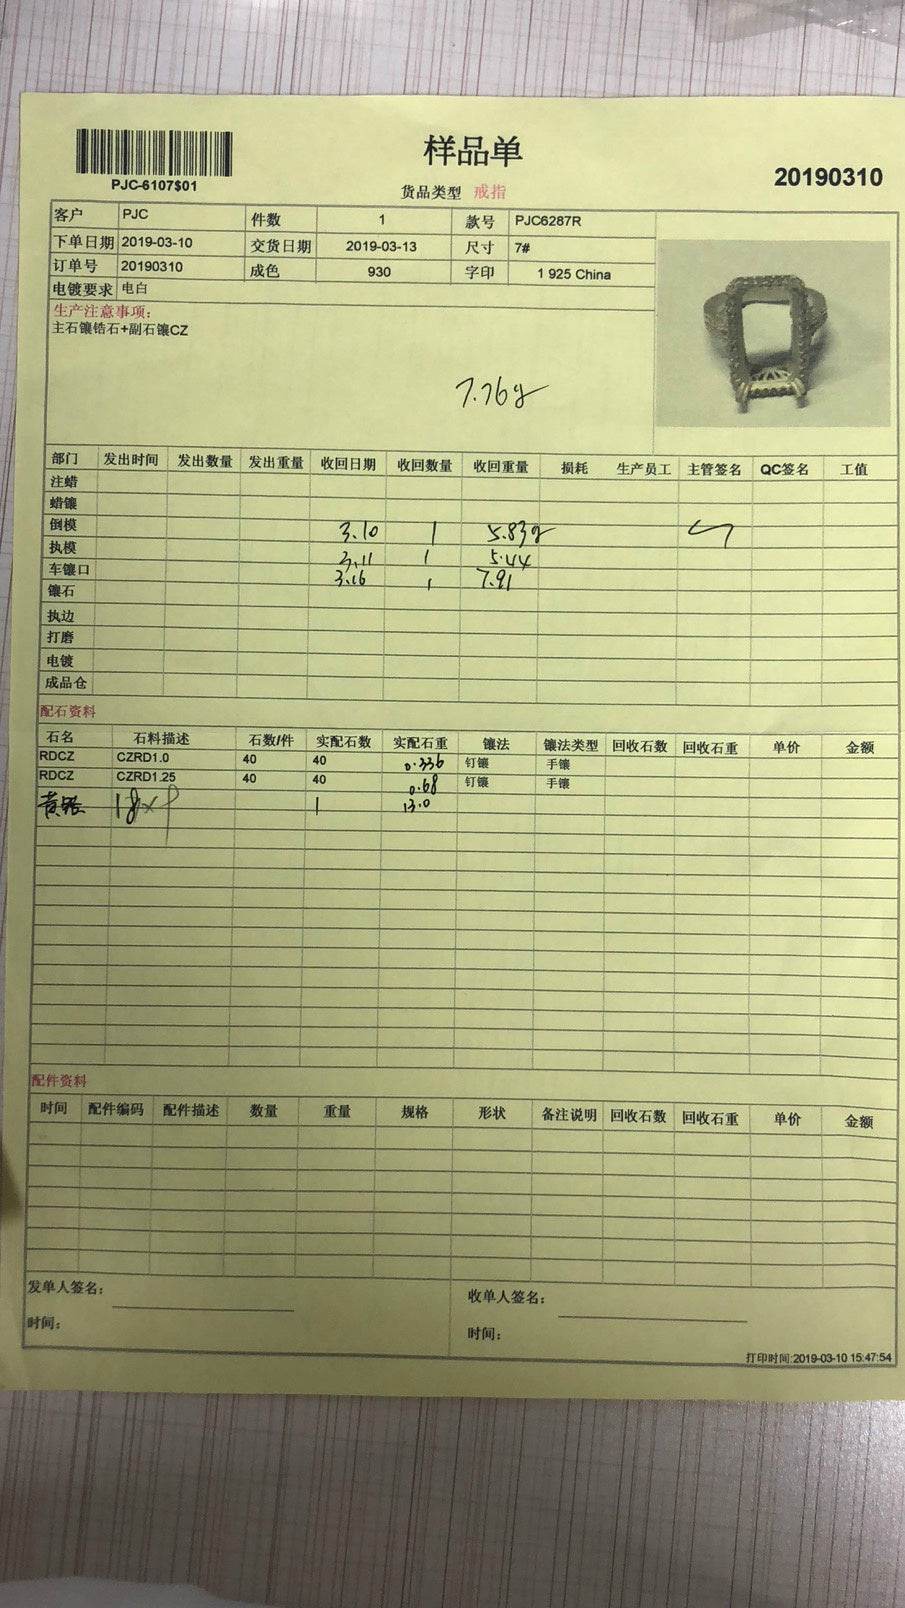 样品单
PJC-6107$01
货品类型 戒指
20190310
客户 PJC 件数 1 款号 PJC6287R
下单日期 2019-03-10 交货日期 2019-03-13 尺寸 7#
订单号 20190310 成色 930 字印 1 925 China
电镀要求 电白
生产注意事项:
主石镶锆石+副石镶CZ
7.76g
部门 发出时间 发出数量 发出重量 收回日期 收回数量 收回重量 损耗 生产员工 主管签名 QC签名 工值
注蜡
蜡镶
倒模 3.10 1 5.83g
执模 3.11 1 5.44
车镶口 3.16 1 7.91
镶石
执边
打磨
电镀
成品仓
配石资料
石名 石料描述 石数/件 实配石数 实配石重 镶法 镶法类型 回收石数 回收石重 单价 金额
RDCZ CZRD1.0 40 40 0.336 钉镶 手镶
RDCZ CZRD1.25 40 40 0.68 钉镶 手镶
黄锆 18×9 1 13.0
配件资料
时间 配件编码 配件描述 数量 重量 规格 形状 备注说明 回收石数 回收石重 单价 金额
发单人签名: 收单人签名:
时间: 时间:
打印时间:2019-03-10 15:47:54